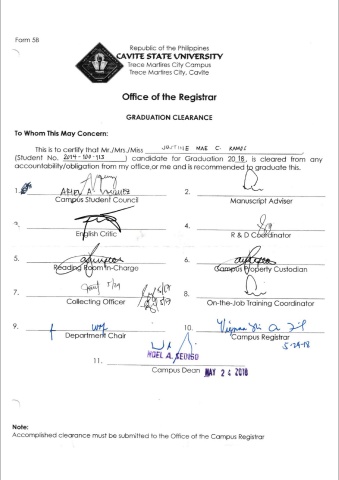 Form 5B
Republic of the Philippines
CAVITE STATE UNIVERSITY
Trece Martires City Campus
Trece Martires City, Cavite
Office of the Registrar
GRADUATION CLEARANCE
To Whom This May Concern:
This is to certify that Mr./Mrs./Miss MAE C.
(Student No. 2014-100-113) candidate for Graduation 2018, is cleared from any
accountability/obligation from my office,or me and is recommended to graduate this.
1.
Campus Student Council
2.
Manuscript Adviser
3.
English Critic
4.
R & D Coordinator
5.
Reading Room In-Charge
6.
Campus Property Custodian
7. 5/24
Collecting Officer
8.
On-the-Job Training Coordinator
9.
Department Chair
10.
Campus Registrar
5-24-18
11. NOEL A. SEDINGO
Campus Dean MAY 24 2018
Note:
Accomplished clearance must be submitted to the Office of the Campus Registrar